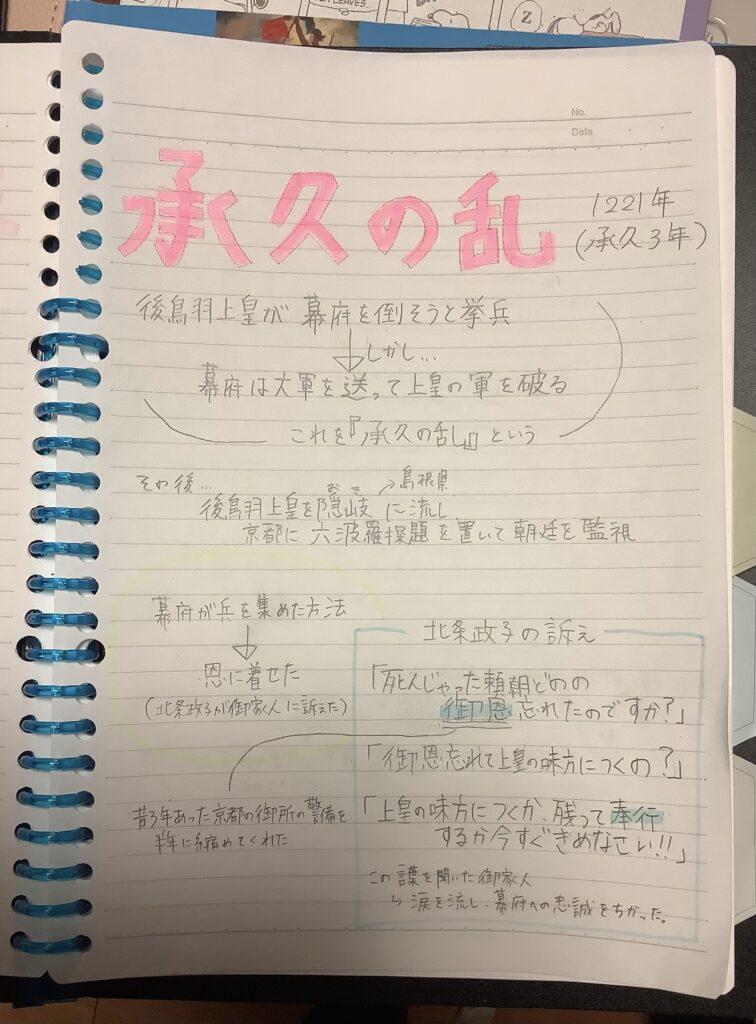 No.
Date
承久の乱
1221年
(承久3年)
後鳥羽上皇が 幕府を倒そうと挙兵
しかし…
幕府は大軍を送って上皇の軍を破る
これを『承久の乱』という
その後…
おき
島根県
後鳥羽上皇を隠岐に流し
京都に 六波羅探題を置いて朝廷を監視
幕府が兵を集めた方法
恩に着せた
(北条政子が御家人に訴えた)
昔3年あった京都の御所の警備を
半年に縮めてくれた
北条政子の訴え
「死んじゃった頼朝どのの
御恩忘れたのですか?」
「御恩忘れて上皇の味方につくの?」
「上皇の味方につくか、残って奉行
するか今すぐきめなさい!!」
この 言葉を聞いた御家人
↳ 涙を流し、幕府への忠誠をちかった。
Z